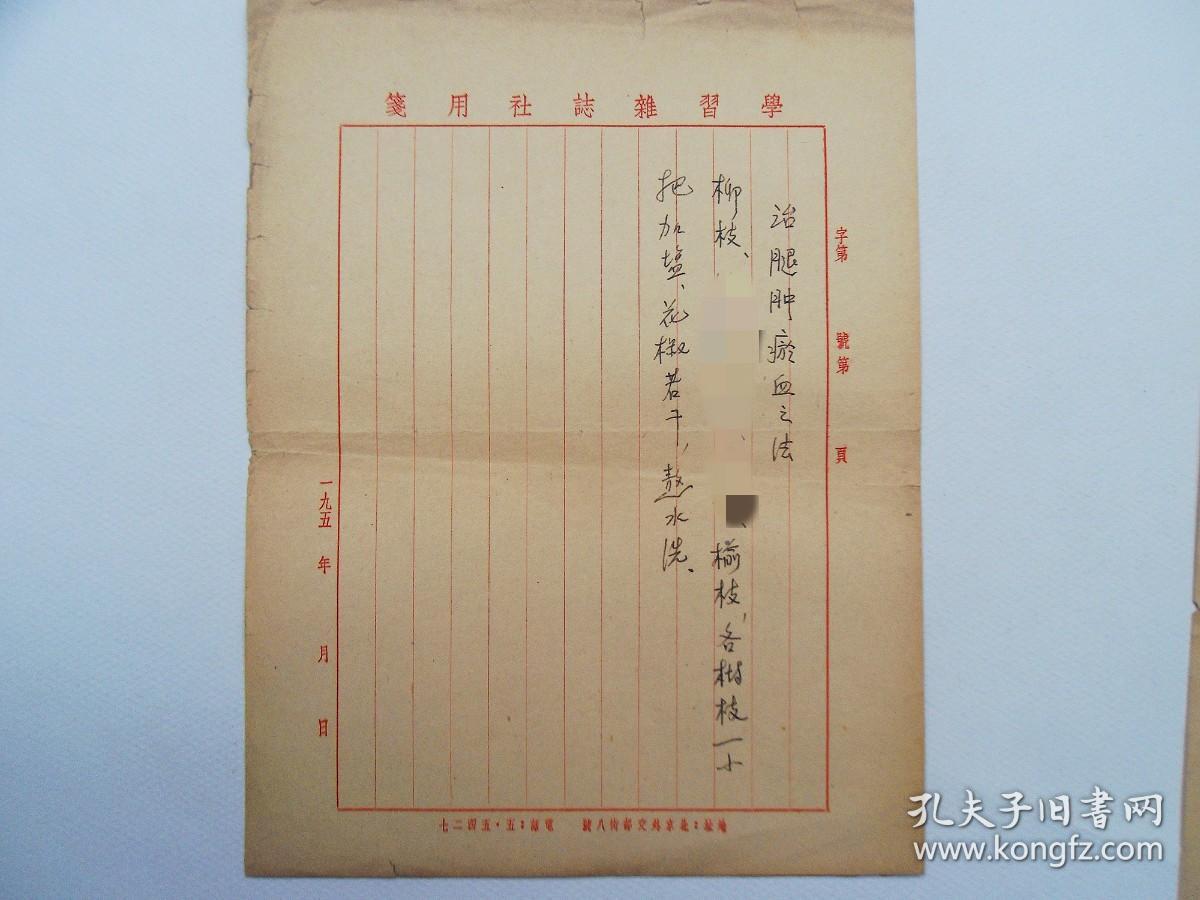 學習雜誌社用箋
字第 號第 頁
治腿肿瘀血之法
柳枝、 、 、榆枝,各树枝一小
把加塩、花椒若干,熬水洗、
一九五 年 月 日
地址:北京外交部街八號 電話:五·五四二七
孔夫子旧书网
www.kongfz.com